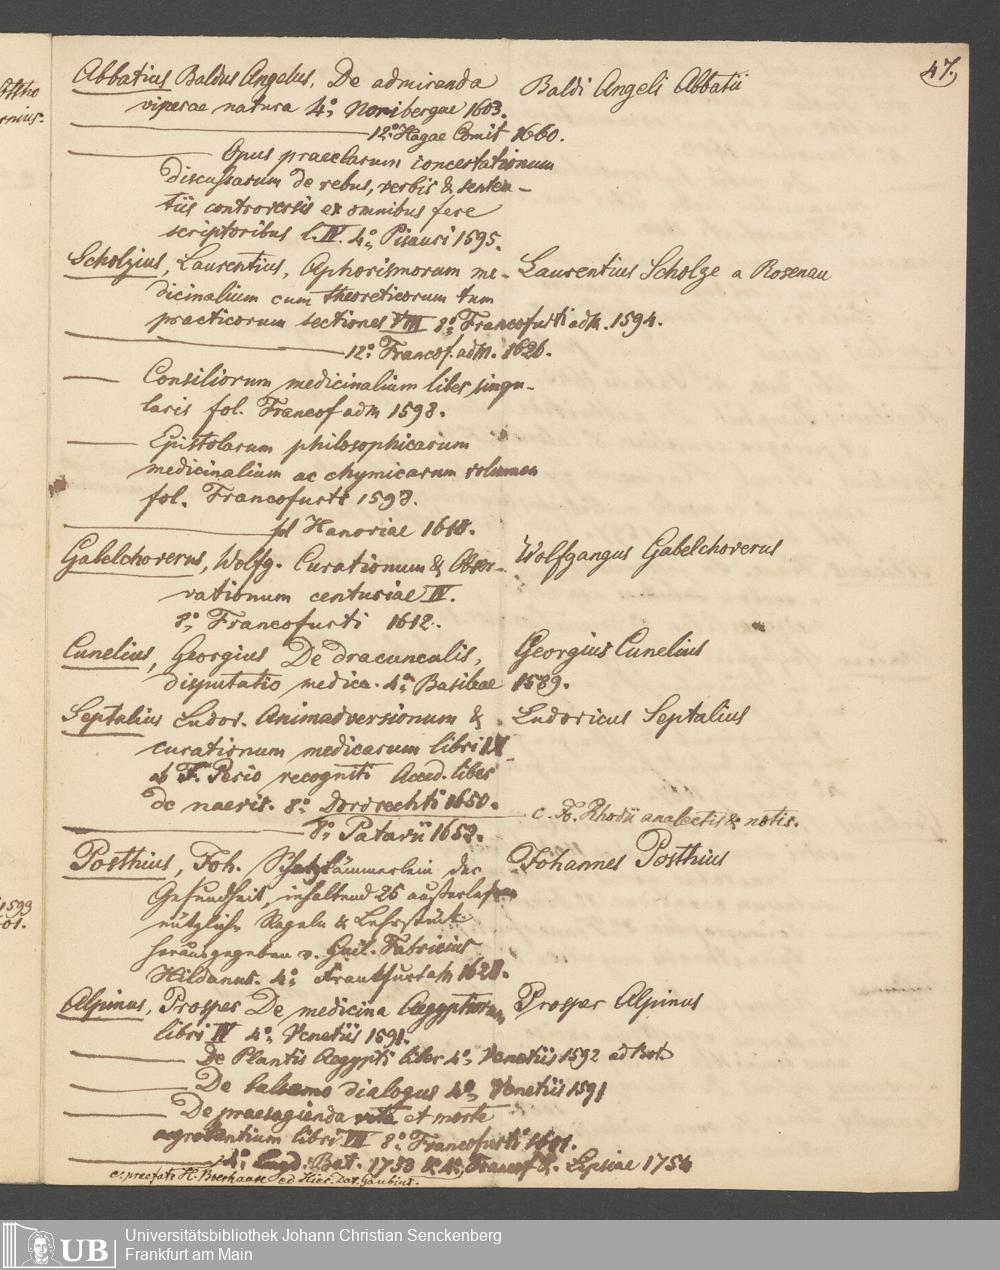 47.
Abbatius Baldus Angelus. De admiranda
viperae natura 4°, Noribergae 1603.
12° Hagae Comit 1660.
Opus praeclarum concertationum
discussarum de rebus, verbis & senten-
tiis controversis ex omnibus fere
scriptoribus l. IV. 4°, Pisauri 1595.
Baldi Angeli Abbatii
Scholzius, Laurentius, Aphorismorum me-
dicinalium cum theoreticorum tum
practicorum sectiones VIII 8°, Francofurti adM. 1594.
12° Francof. adM. 1626.
Consiliorum medicinalium liber singu-
laris fol. Francof adM 1598.
Epistolarum philosophicarum
medicinalium ac chymicarum volumen
fol. Francofurti 1598.
fol Hanoviae 1610.
Laurentius Scholze a Rosenau
Gabelchoverus, Wolfg. Curationum & Obser-
vationum centuriae IV.
8°, Francofurti 1612.
Wolfgangus Gabelchoverus
Cunelius, Georgius De dracunculis,
disputatio medica. 4°, Basileae 1589.
Georgius Cunelius
Septalius Ludov. Animadversionum &
curationum medicarum libri IX
ab F. Perio recogniti Acced. liber
de naevis. 8° Dordrechti 1650.
8°, Patavii 1652. c. Jo. Rhodii analectis & notis.
Ludovicus Septalius
Posthius, Joh. Schatzkämmerlein der
Gesundheit, inhaltend 25 außerlesen
nützliche Regeln & Lehrstück
herausgegeben v. Guil. Fabricius
Hildanus. 4°, Frankfurt aM 1628.
Johannes Posthius
Alpinus, Prosper De medicina Aegyptiorum
libri IV 4°, Venetiis 1591.
De Plantis Aegypti liber 4°, Venetiis 1592 ad Bot
De balsamo dialogus 4°, Venetiis 1591
De praesagienda vita et morte
aegrotantium libri VII 8°, Francofurti 1601.
4°, Lugd. Bat. 1733 & 4°, Francof & Lipsiae 1754
c. praefati H. Boerhaave ed Hier. Dav. Gaubius.
Prosper Alpinus
1593
UB
Universitätsbibliothek Johann Christian Senckenberg
Frankfurt am Main